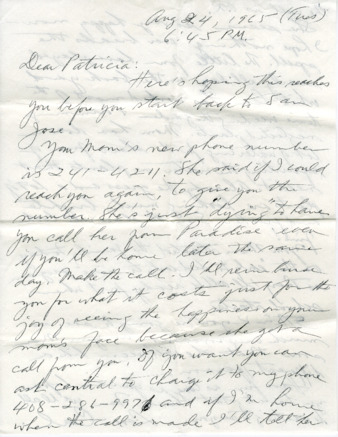 Aug 24, 1965 (Tues)
6:45 P.M.
Dear Patricia:
Here's hoping this reaches
you before you start back to San
Jose.
Your Mom's new phone number
is 241-4211. She said if I could
reach you again, to give you the
number. She's just "dying" to have
you call her from Paradise even
if you'll be home later the same
day. Make the call. I'll reimburse
you for what it costs just for the
joy of seeing the happiness on your
moms face because she got a
call from you. If you want you can
ask central to charge it to my phone
408-286-9976 and if I'm home
when the call is made I'll tell her